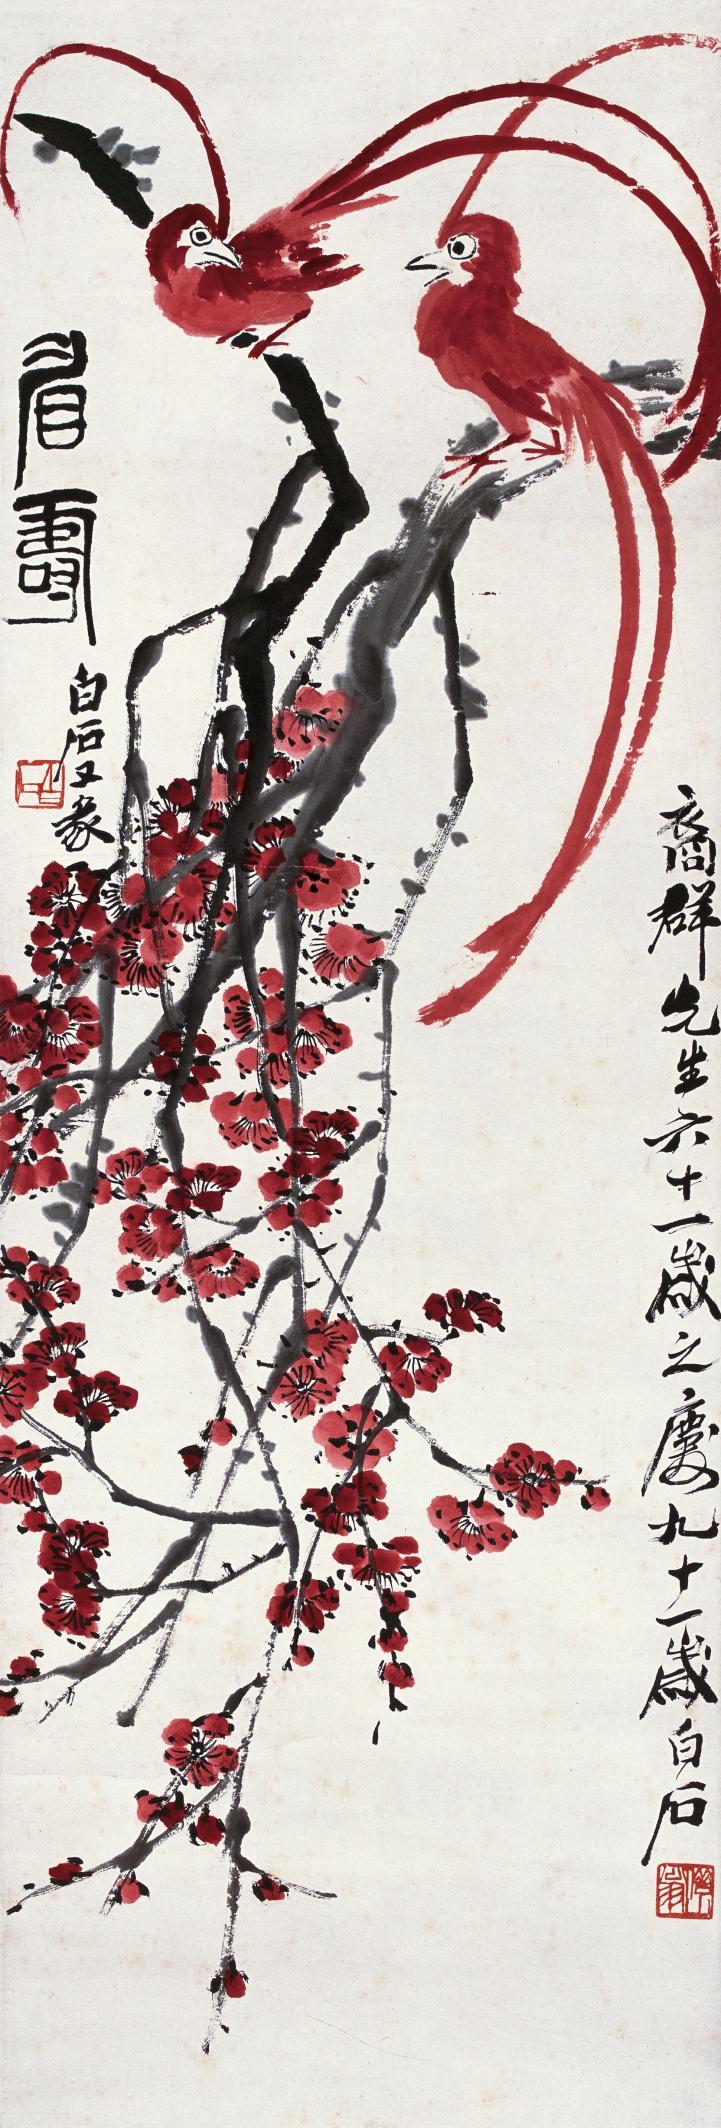 裔群先生六十一歲之慶九十一歲白石
眉壽
白石又篆